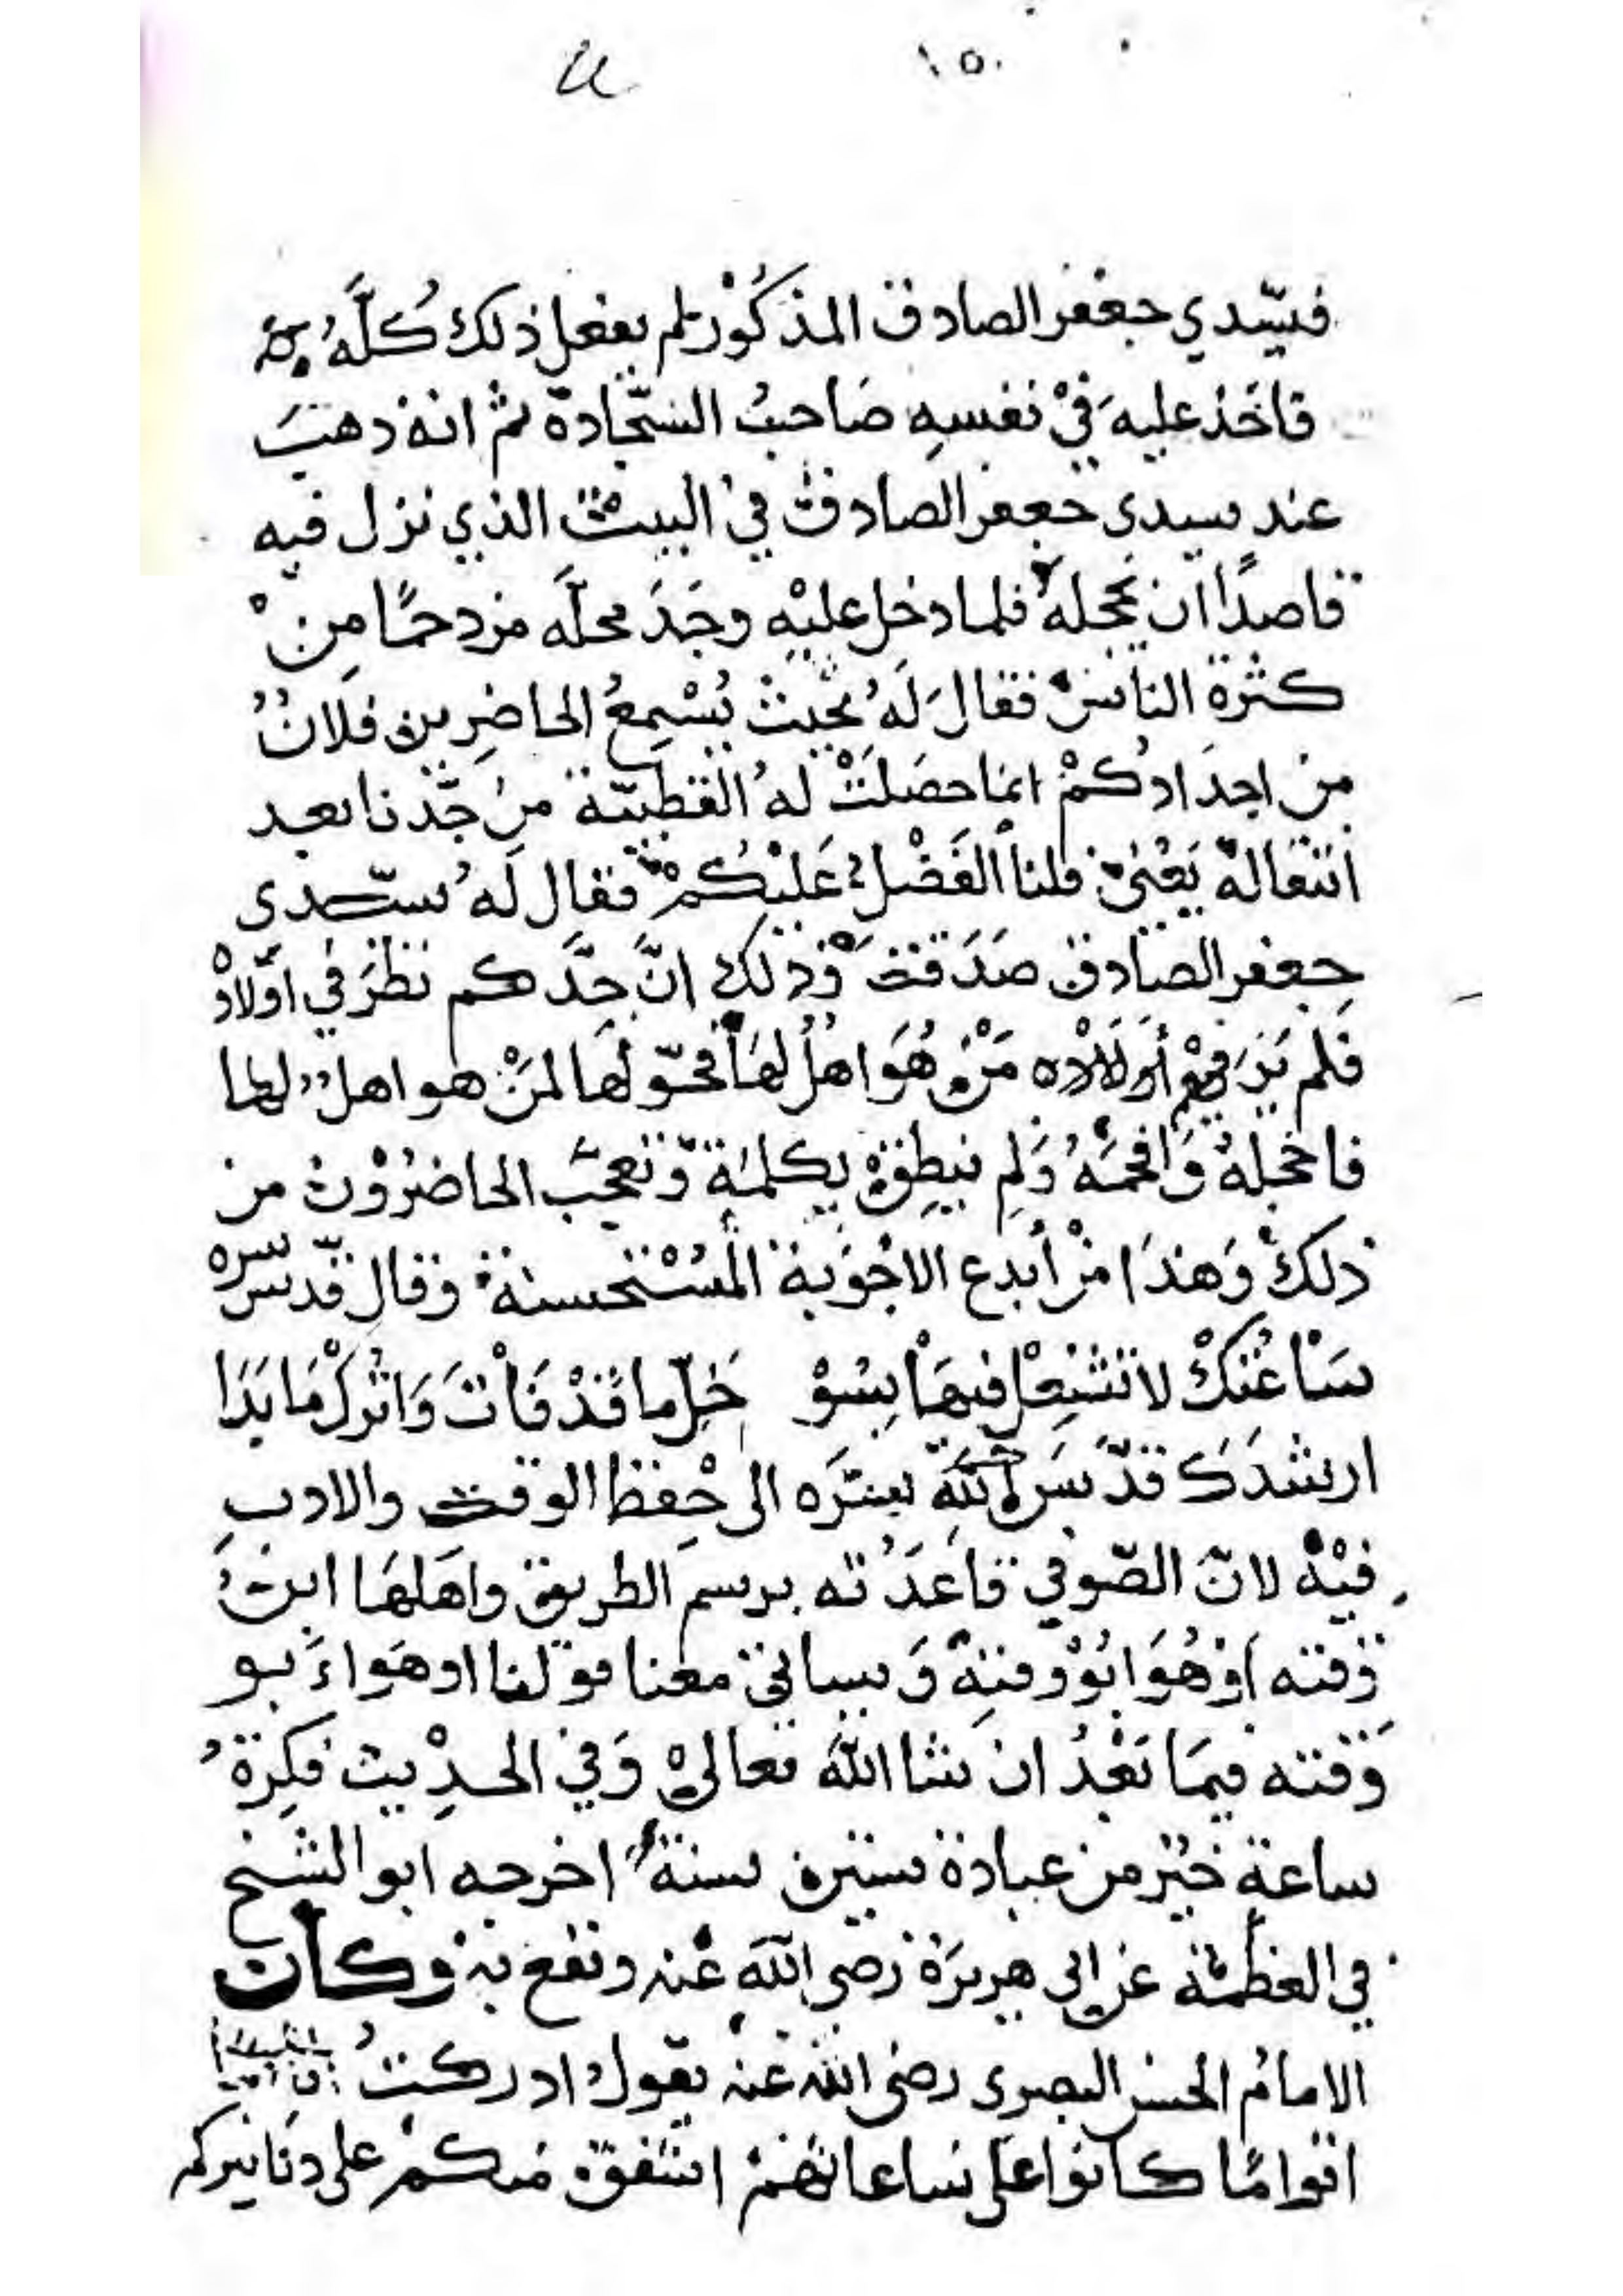 ١٥٠
فسيّدي جعفر الصادق المذكور لم يفعل ذلك كُلَّهُ
فاخَذ عليه في نفسِه صَاحبُ السّجادة ثم انه ذهبَ
عند سيدى جعفر الصادق في البيت الذي نزل فيه
قاصدًا ان يخجله فلما دخل عليْهِ وجَدَ محلَّه مزدحمًا مِنْ
كثرة الناس فقال لَهُ بحيث يُسْمِعُ الحاضِرين فلانٌ
من اجدَادكمْ انما حصَلتْ لهُ القطبيّة من جَدّنا بعد
انتقاله يَعْني فلنا الفَضْلُ عَليْكُمْ فقال لَهُ سيّدى
جعفر الصادق صَدَقتَ وَذلك انَّ جَدَّكم نظَرَ في اَوْلادْ
فَلم يَرَ فيهم أوْلَادْه مَنْ هُوَ اهلٌ لهَا فحوّلَها لمنْ هو اهلٌ لها
فاخجلهُ وَافحمَهُ وَلم ينطِقْ بكلمةٍ وَتعجّبَ الحاضرُوْن من
ذلكَ وَهذَا منْ أبدع الاجْوبة المُسْتحسنة وقال قدّس سره
سَاعْتكْ لا تشتِغلْ فيهَا بسُوْ خَلِّ ما قدْ فَاتَ وَاتْركْ مَا بَدَا
ارشدَكَ قدّسَ اللهُ سرَّه الى حْفِظ الوقت والادبِ
فيْهِ لانّ الصّوفي قاعَدَته برسم الطريق واهَلهَا ابنُ
وقته اوْ هُوَ ابُوْ وقتِهِ وَسياتي معنا قولنا او هَوَ اَبو
وَقته فيمَا بَعْدُ ان شا اللهُ تعالىْ وَفي الحدِيْث فكِرةُ
ساعة خيْر من عبادة ستين سنة اخرجه ابو الشيخ
في العظمة عن ابى هريرَة رضي اللهُ عنه ونفع به وكان
الامامُ الحسن البصرى رضى الله عنه يقولُ ادركتُ
اقوامًا كانوا على ساعاتهمْ اشفق منكمْ على دنانيركم